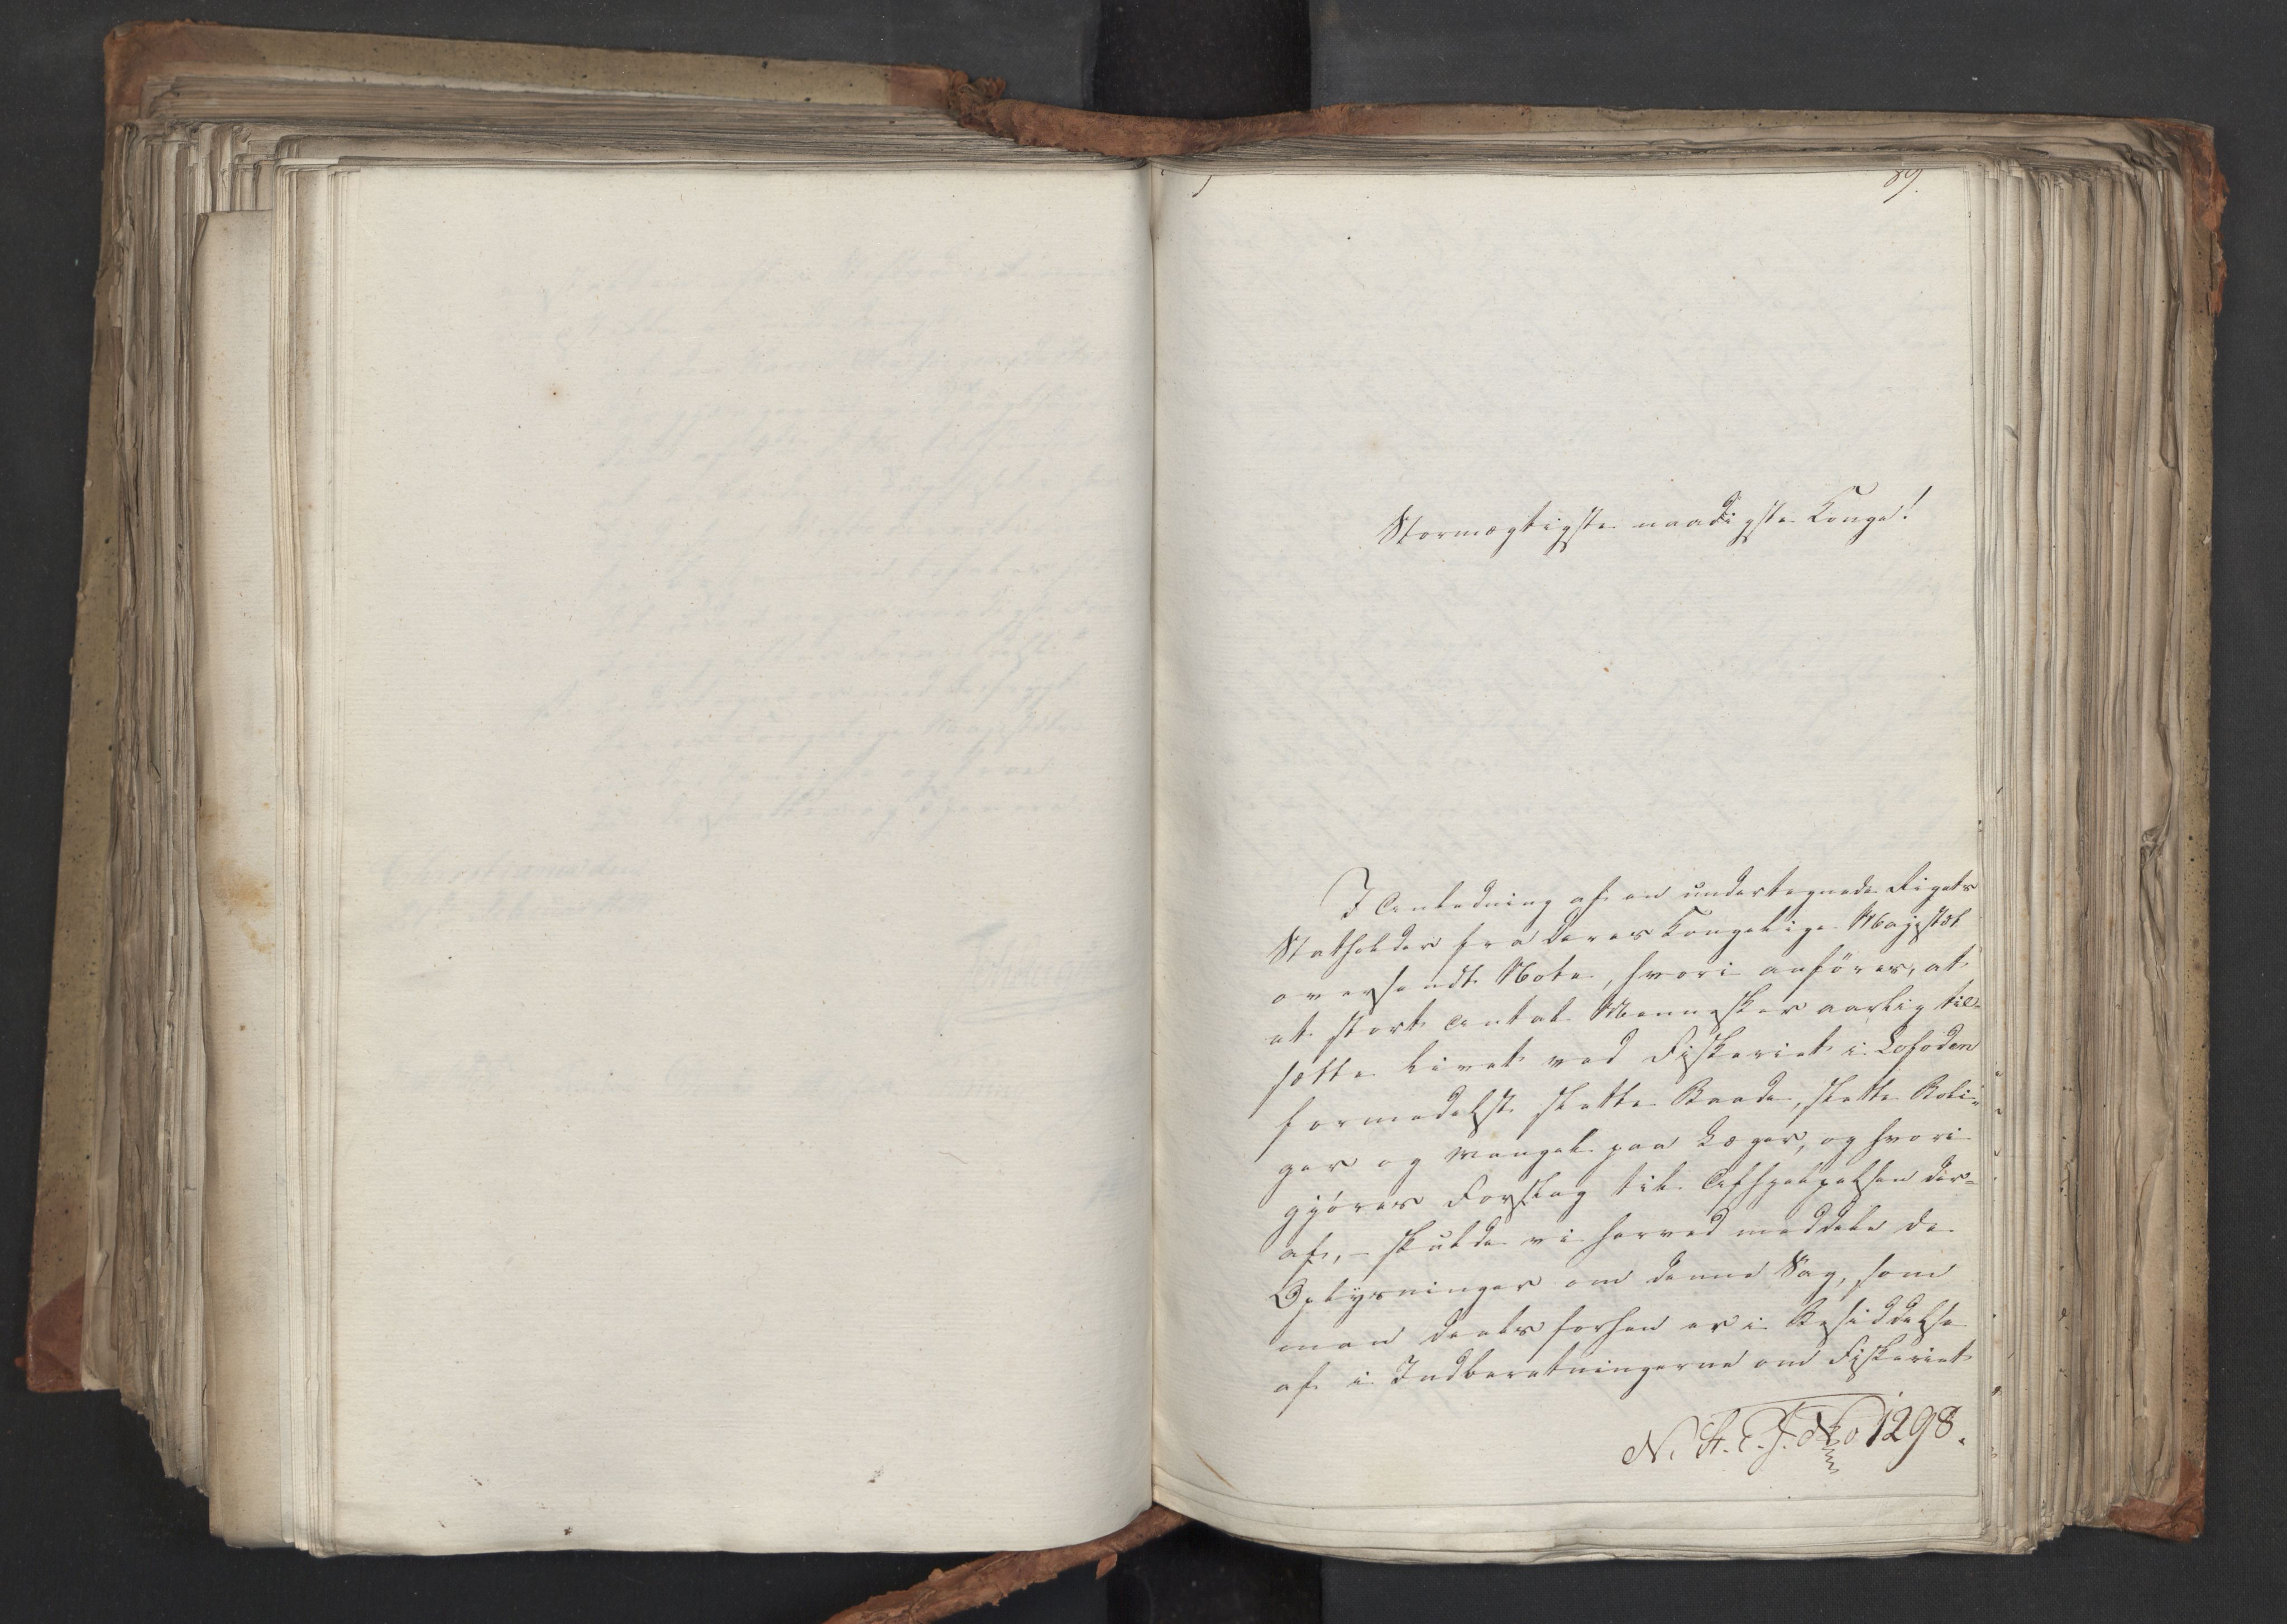 89.
Stormægtigste naadigste Konge!
I Anledning af en undertegnede Rigets
Statholder fra Deres Kongelige Majestæt
oversendt Note, hvori anföres, at
et stort Antal Mennesker aarlig til-
sætte Livet ved Fiskeriet i Lofoden
formedelst slette Baade, slette Boli-
ger og Mangel paa Læger, og hvori
gjöres Forslag til Afhjelpelsen der-
af, - skulde vi herved meddele de
Oplysninger om denne Sag, som
man deels forhen er i Besiddelse
af i Indberetningerne om Fiskeriet
N. St. C. J. No 1298.